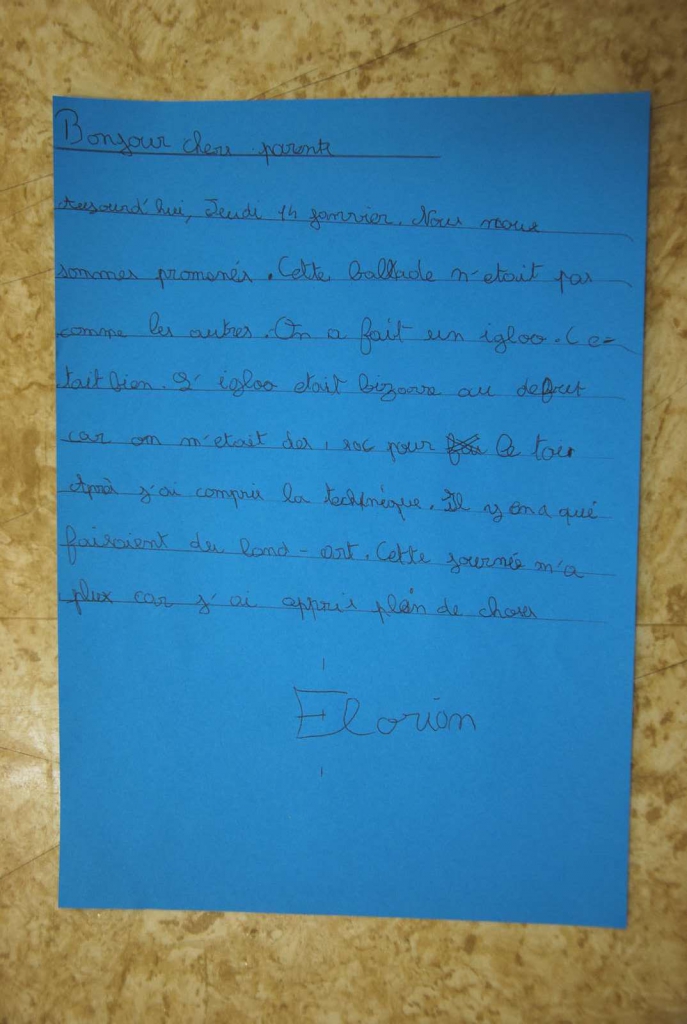 Bonjour chers parents
Aujourd'hui, Jeudi 14 janvier. Nous nous
sommes promenés. Cette ballade n'etait pas
comme les autres. On a fait un igloo. C e-
tait bien. L' igloo etait bizarre au debut
car on m'etait des, sac pour le tour
Après j'ai compris la technique. Il y en a qué
faisaient du land-art. Cette journée m'a
plux car j'ai appris plein de choses
Florian